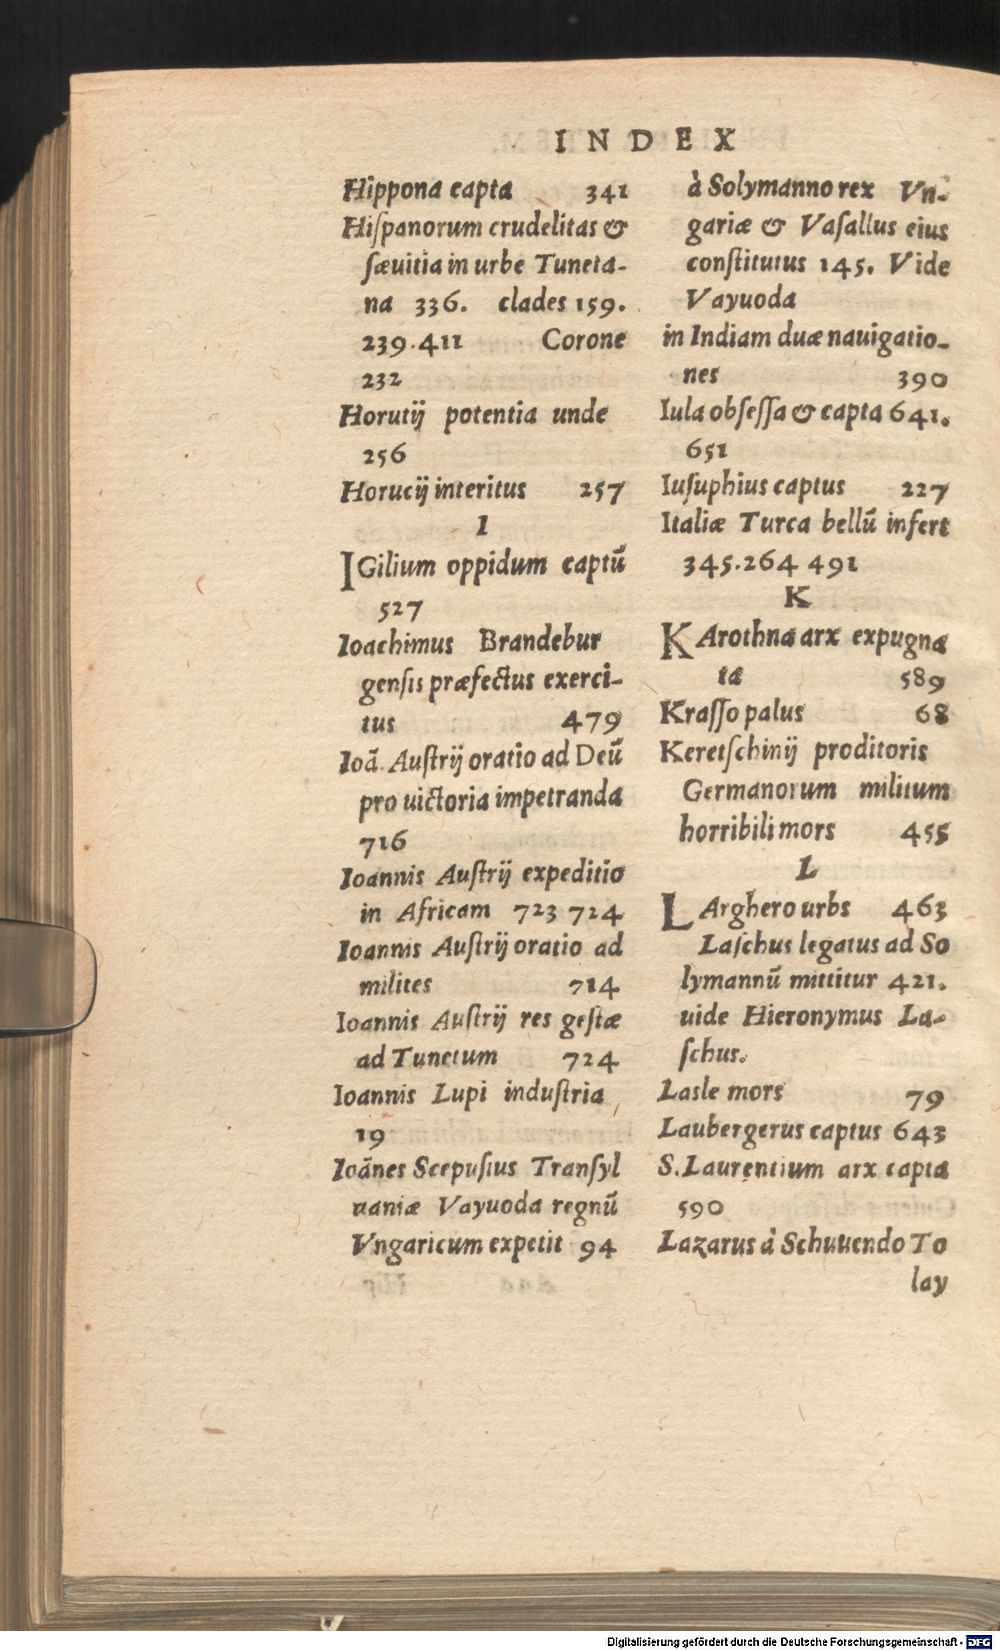 INDEX
Hippona capta 341
Hiſpanorum crudelitas &
ſæuitia in urbe Tuneta-
na 336. clades 159.
239.411 Corone
232
Horutij potentia unde
256
Horucij interitus 257
I
IGilium oppidum captū
527
Ioachimus Brandebur
genſis præfectus exerci-
tus 479
Ioā. Auſtrij oratio ad Deū
pro uictoria impetranda
716
Ioannis Auſtrij expeditio
in Africam 723 724
Ioannis Auſtrij oratio ad
milites 714
Ioannis Auſtrij res geſtæ
ad Tunetum 724
Ioannis Lupi induſtria
19
Ioānes Scepuſius Tranſyl
uaniæ Vayuoda regnū
Vngaricum expetit 94
à Solymanno rex Vn-
gariæ & Vaſallus eius
conſtitutus 145. Vide
Vayuoda
in Indiam duæ nauigatio-
nes 390
Iula obſeſſa & capta 641.
651
Iuſuphius captus 227
Italiæ Turca bellū infert
345.264 491
K
KArothna arx expugna
ta 589
Kraſſo palus 68
Keretſchinij proditoris
Germanorum militum
horribili mors 455
L
LArghero urbs 463
Laſchus legatus ad So
lymannū mittitur 421.
uide Hieronymus La-
ſchus.
Lasle mors 79
Laubergerus captus 643
S. Laurentium arx capta
590
Lazarus à Schuuendo To
lay
Digitalisierung gefördert durch die Deutsche Forschungsgemeinschaft - DFG